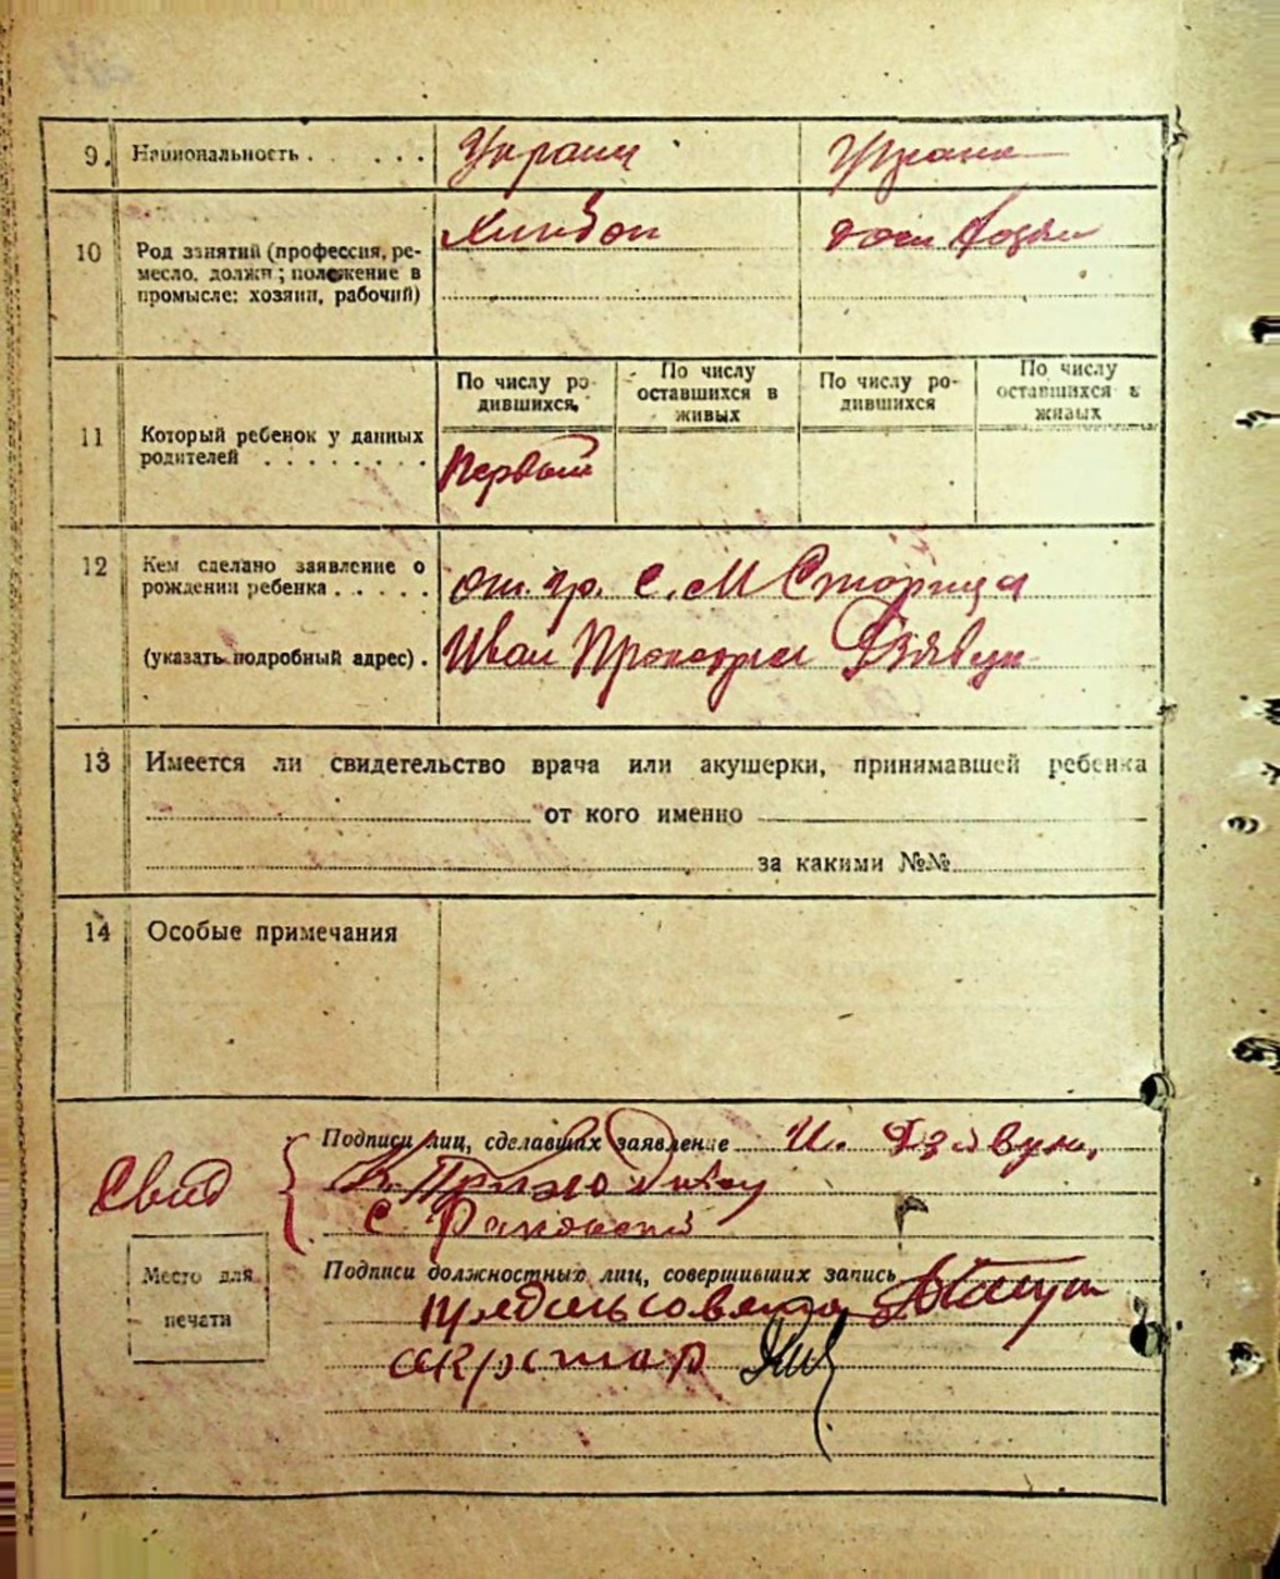 9. Национальность . . . . . . Украин Украин
10 Род занятий (профессия, ре-
месло, должн; положение в
промысле: хозяин, рабочий)
Хлибоп дом хозяи
11 Который ребенок у данных
родителей . . . . . . . .
По числу ро-
дившихся,
По числу
оставшихся в
живых
По числу ро-
дившихся
По числу
оставшихся в
живых
Первый
12 Кем сделано заявление о
рождении ребенка . . . . .
(указать подробный адрес) .
от гр. с. М Сторица
Иван Дзявун
13 Имеется ли свидетельство врача или акушерки, принимавшей ребенка
от кого именно
за какими №№
14 Особые примечания
Подписи лиц, сделавших заявление И. Дзявун,
Свид
К. Приходько
С
Место для
печати
Подписи должностных лиц, совершивших запись
предсельсовета
секретар